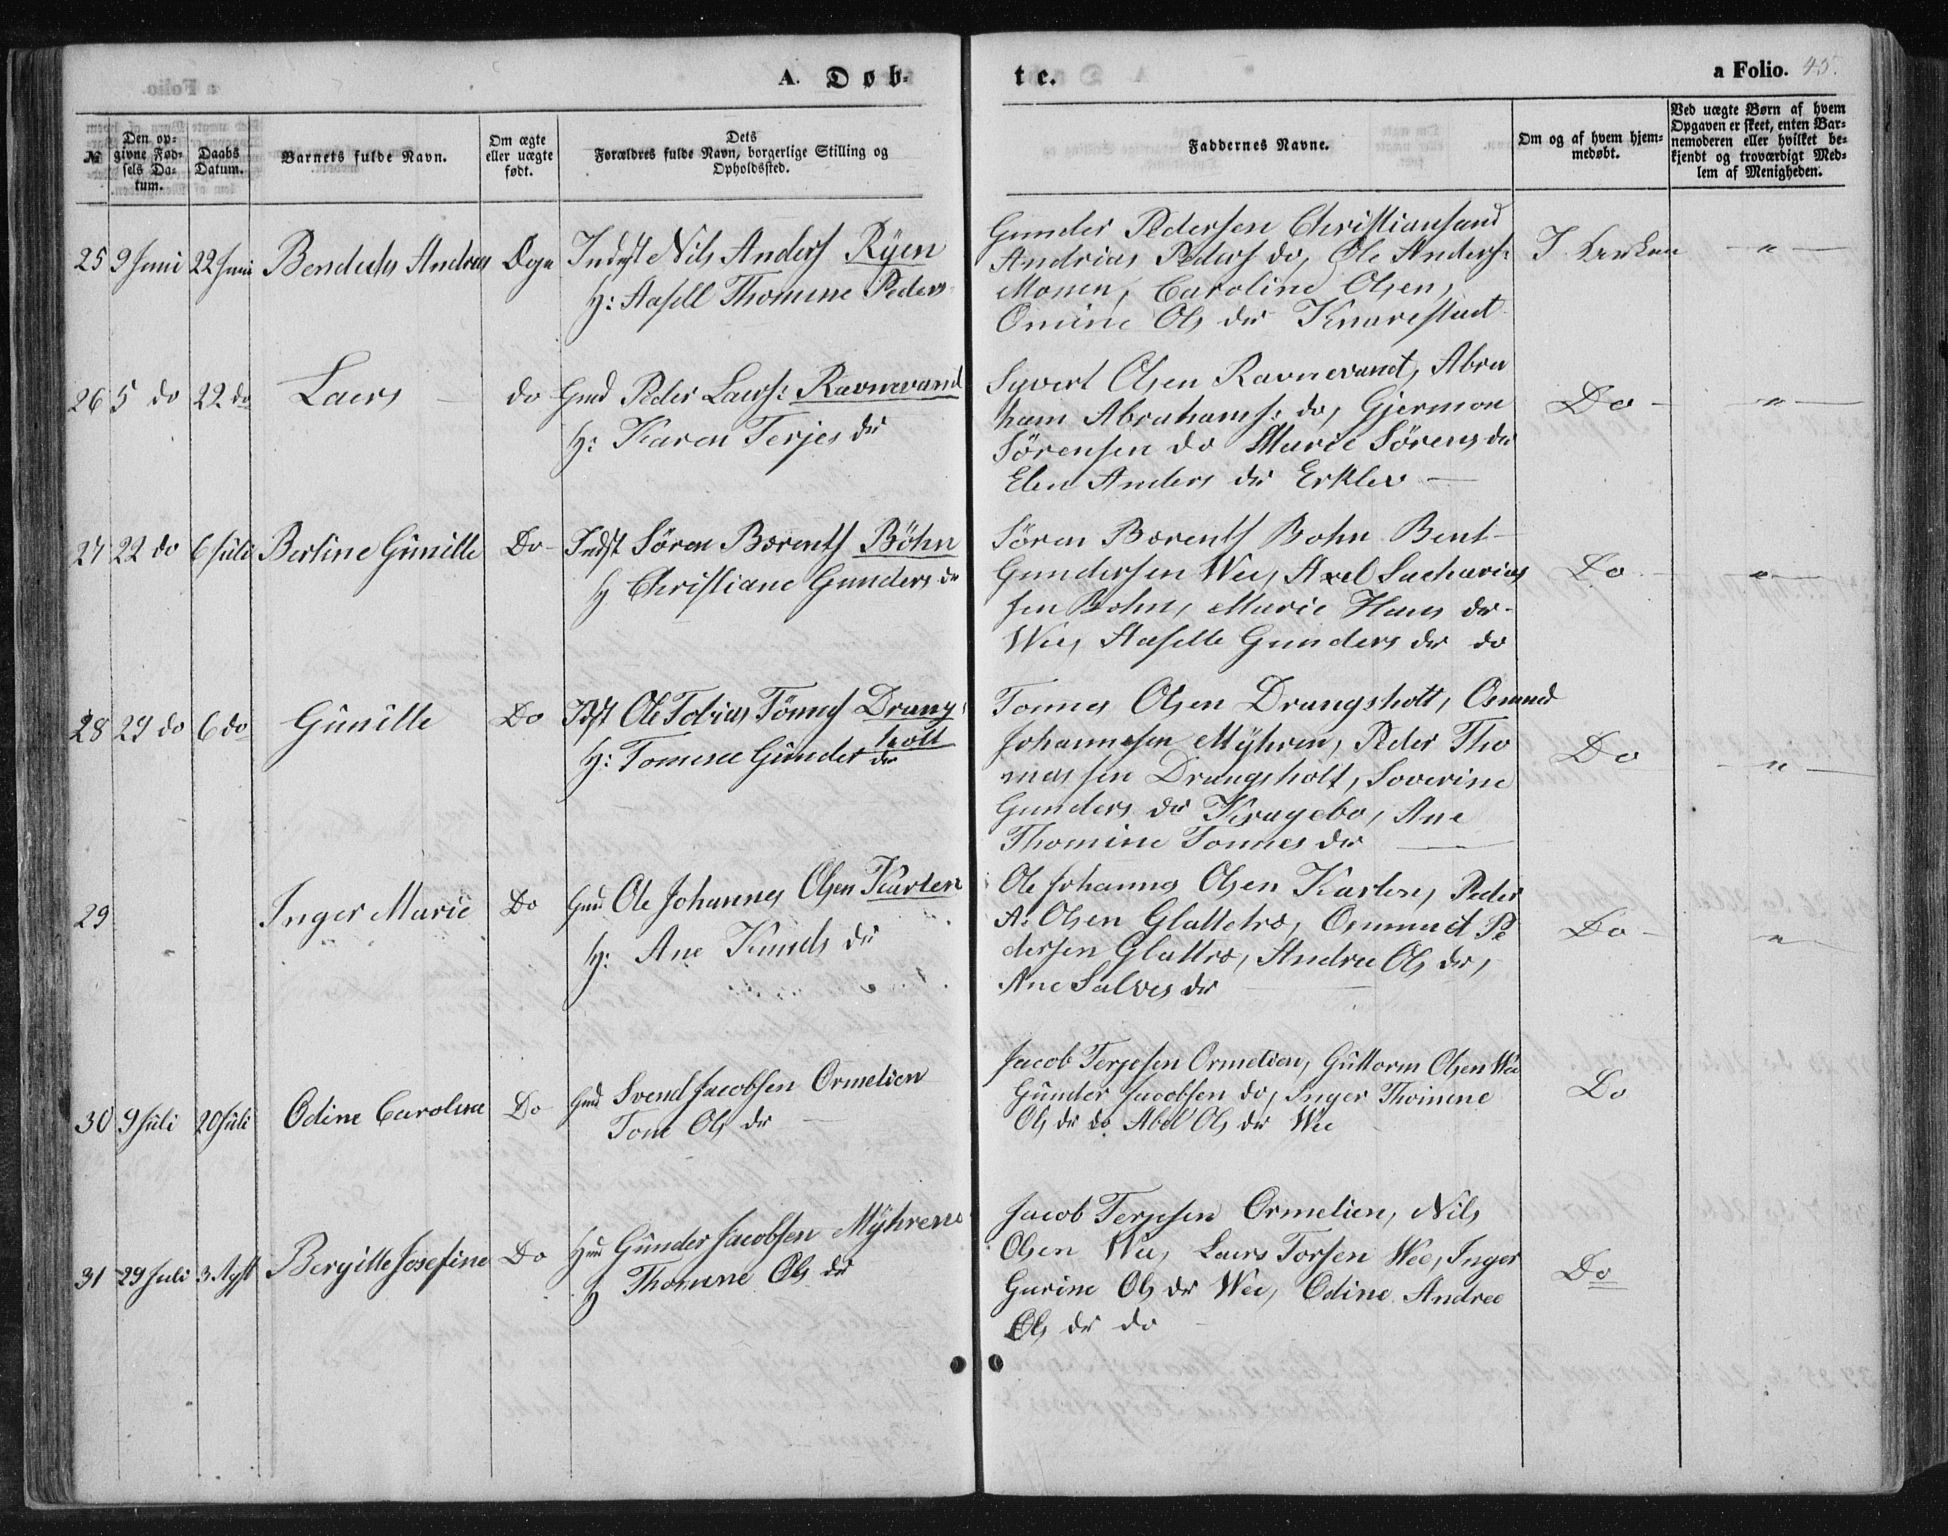 A. Døb-
te.
a Folio. 45.
№
Den opgivne Fødsels Datum.
Daabs Datum.
Barnets fulde Navn.
Om ægte eller uægte født.
Dets Forældres fulde Navn, borgerlige Stilling og Opholdssted.
Faddernes Navne.
Om og af hvem hjemmedøbt.
Ved uægte Børn af hvem Opgaven er skeet, enten Barnemoderen eller hvilket bekjendt og troværdigt Medlem af Menigheden.
25 9 Juni 22 Juni Andreas
Nils Anders Ryen
H: Aasell Thomine Peders
Gunder Pedersen Christiansand
Andrias Peders do, Ole Anders:
Monen, Caroline Olsen,
Omine Ols dr Knarestad
I Kirken
"
26 5 do 22 do Laurs do Gmd Peder Laurs: Ravnevand
H: Karen Terjes dr
Syvert Olsen Ravnevand, Abra
ham Abrahams: do, Gjermon
Sørensen do Marie Sørens dr
Elen Anders dr Erklev
Do
"
27 22 do 6 Juli Berline Gunille Do Indst Søren Bærents Bøhn
H Christiane Gunders dr
Søren Bærents Bohn Bent
Gundersen Wee, Axel Sacharias
sen Bohn, Marie Hans dr
Wee, Aaselle Gunders dr do
Do
"
28 29 do 6 do Gunille Do Idst Ole Tobias Tönnes Drangs
holt
H: Tomine Gunder dr
Tonnes Olsen Drangsholt, Osmund
Johannesen Myhren, Peder Tho
massen Drangsholt, Soverine
Gunders dr Kragebo, Ane
Thomine Tonnes dr
Do
"
29 Inger Marie Do Gmd Ole Johannes Olsen Karlen
H: Ane Knuds dr
Ole Johannes Olsen Karlen, Peder
A. Olsen Glattetre, Osmund Pe
dersen Glattre, Andrea Ols dr,
Ane Salves dr
Do
"
30 9 Juli 20 Juli Odine Carolina Do Gmd Svend Jacobsen Ormelien
Tone Ols dr
Jacob Terjesen Ormelien, Guttorm Olsen Wee
Gunder Jacobsen do, Inger Thomine
Ols dr do Abel Ols dr Wee
Do
31 29 Juli 3 Agst Bergitte Josefine Do Gunder Jacobsen Myhren
H Thomine Ols dr
Jacob Terjesen Ormelien, Nils
Olsen Wee, Laurs Torsen Wee, Inger
Gurine Ols dr Wee, Odine Andrea
Ols dr do
Do